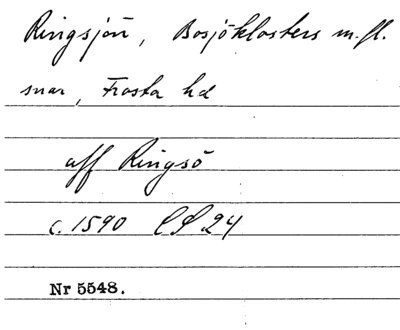 Ringsjön, Bosjöklosters m.fl.
snar, Frosta hd
aff Ringsö
c. 1590 LS 24
Nr 5548.